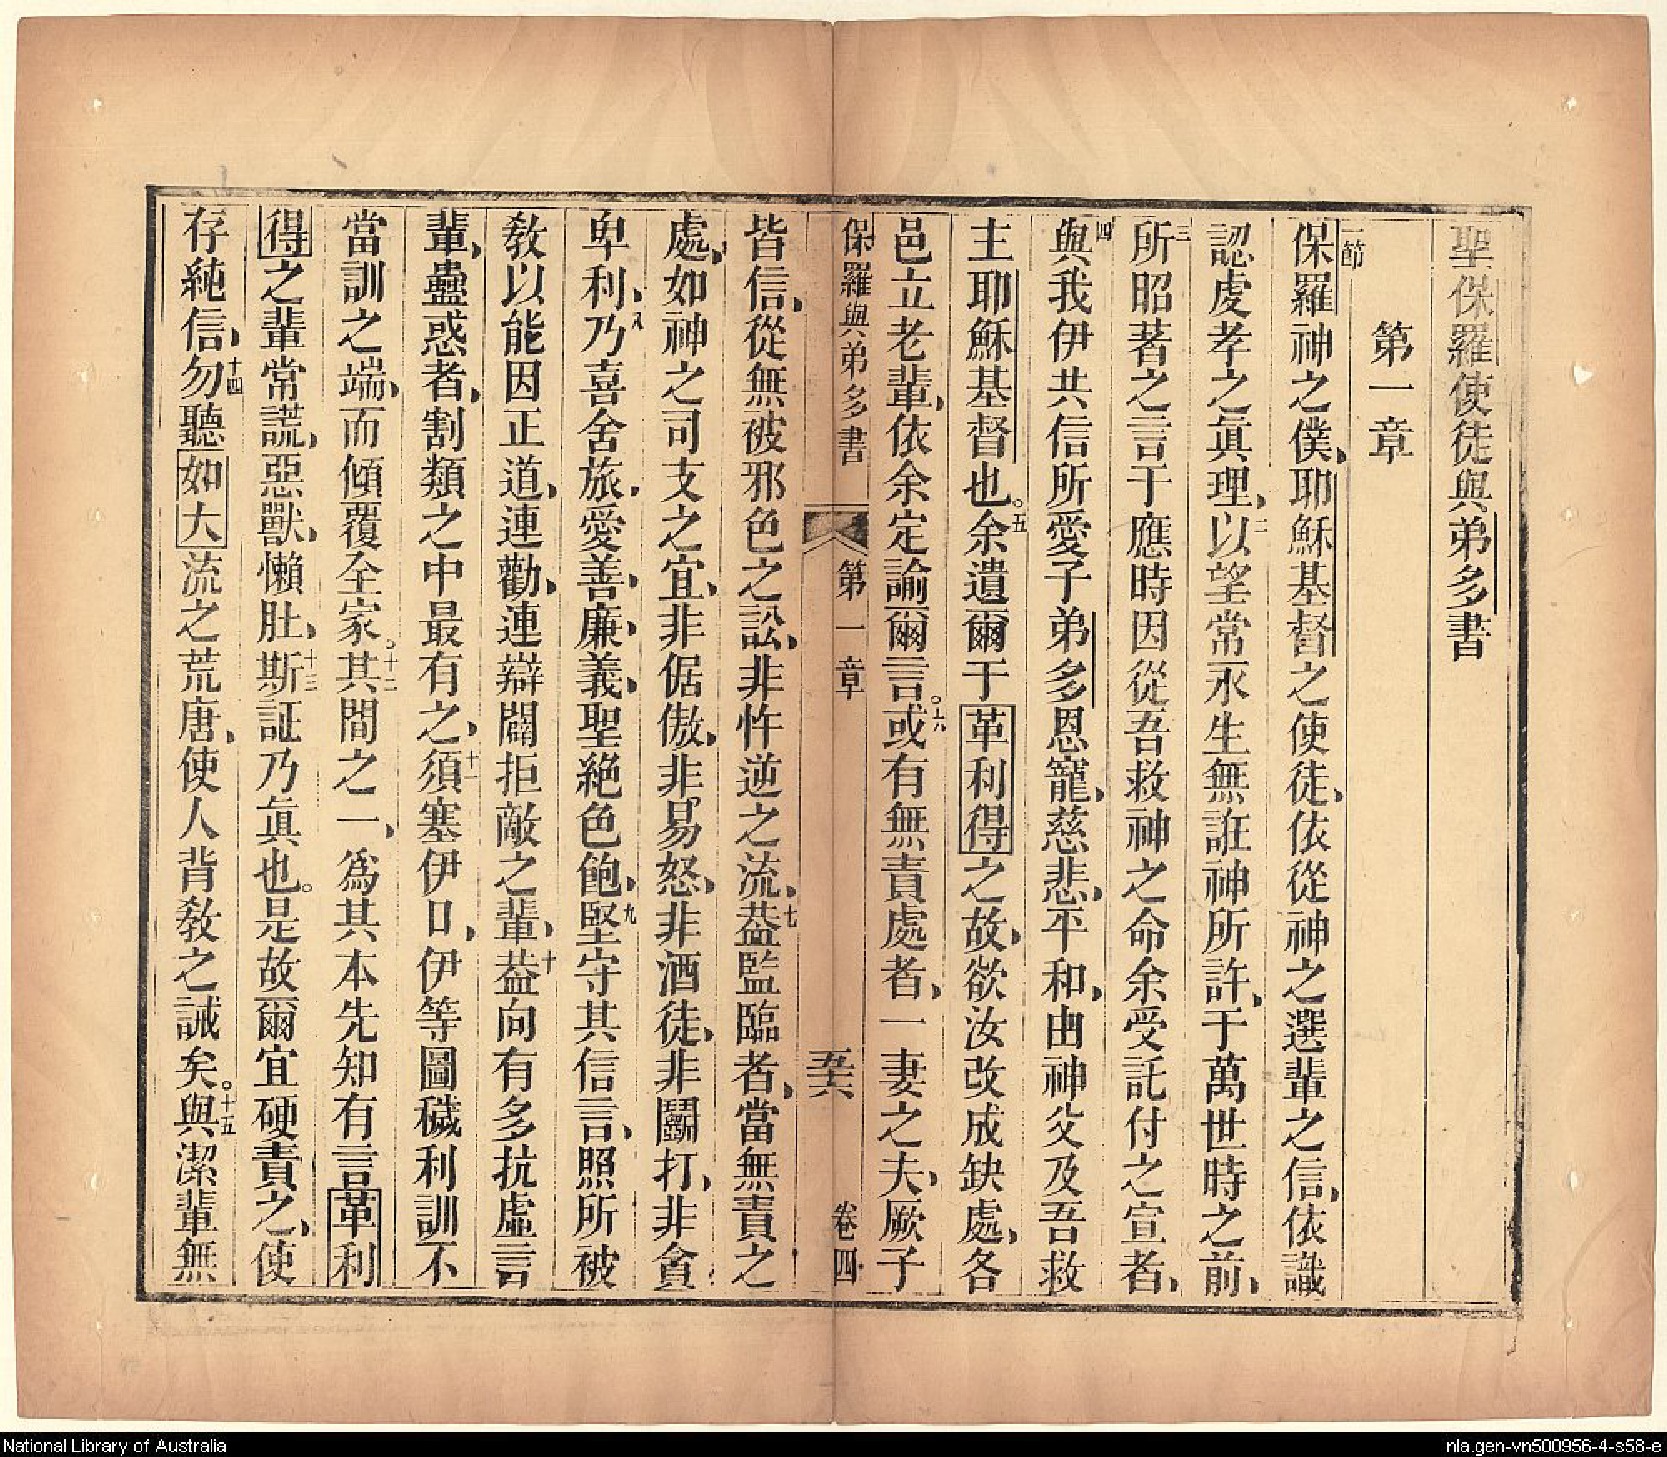 聖保羅使徒與弟多書
第一章
一節
保羅神之僕、耶穌基督之使徒、依從神之選輩之信、依識
認虔孝之眞理、二以望常永生無誑神所許、于萬世時之前、
三所昭著之言于應時因從吾救神之命余受託付之宣者、
四與我伊共信所愛子弟多恩寵、慈悲、平和、由神父及吾救
主耶穌基督也。五余遺爾于革利得之故、欲汝改成缺處、各
邑立老輩、依余定諭爾言。六或有無責處者、一妻之夫、厥子
保羅與弟多書 第一章 五十六 卷四
皆信、從無被邪色之訟、非忤逆之流、七葢監臨者、當無責之
處、如神之司支之宜、非倨傲、非易怒、非酒徒、非鬬打、非貪
卑利、八乃喜舍旅、愛善、廉義、聖絕色飽、九堅守其信言、照所被
敎以能因正道、連勸、連辯闢拒敵之輩、十葢向有多抗虛言
輩、蠱惑者、割類之中最有之、十一須塞伊口、伊等圖穢利訓不
當訓之端、而傾覆全家。十二其間之一、爲其本先知有言革利
得之輩常謊、惡獸、懶肚、十三斯証乃眞也。是故爾宜硬責之、使
存純信、十四勿聽如大流之荒唐、使人背敎之誡矣。十五與潔輩無
National Library of Australia
nla.gen-vn500956-4-s58-e